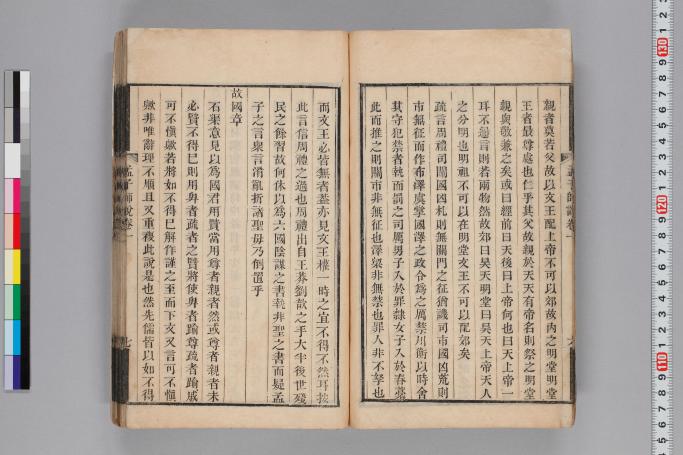 親者莫若父故以文王配上帝不可以郊故內之明堂明堂
王者最尊處也仁乎其父故親於天天有帝名則祭之明堂
親與敬兼之矣或曰經前曰天後曰上帝何也曰天上帝一
耳不通言則若兩物然故郊曰昊天明堂曰昊天上帝天人
之分明也明祖不可以在明堂文王不可以配郊矣
疏言周禮司關國凶札則無關門之征猶譏司市國凶荒則
市無征而作布澤虞掌國澤之政令為之厲禁川衡以時舍
其守犯禁者執而罰之司厲男子入於罪隸女子入於舂藁
此而推之則關市非無征也澤梁非無禁也罪人非不孥也
而文王必皆無者蓋亦見文王權一時之宜不得不然耳按
此言信周禮之過也周禮出自王莽劉歆之手大半後世殘
民之餘習故何休以為六國陰謀之書執非聖之書而疑孟
子之言衆言淆亂折諸聖毋乃倒置乎
故國章
石渠意見以為國君用賢當用尊者親者然或尊者親者未
必賢不得已則用卑者疏者之賢將使卑者踰尊疏者踰戚
可不愼歟若將如不得已解作謹之至而下文又言可不愼
歟非唯辭理不順且又重複此說是也然先儒皆以如不得
孟子師說卷一
七
孟子師說卷一